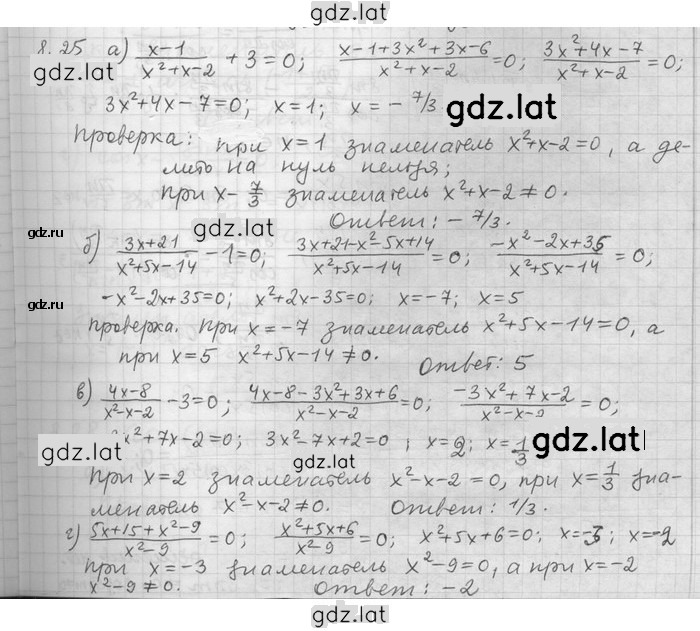 gdz.lat
8.25 а) (x-1)/(x²+x-2) + 3 = 0; (x-1+3x²+3x-6)/(x²+x-2) = 0; (3x²+4x-7)/(x²+x-2) = 0;
gdz.lat
3x²+4x-7=0; x=1; x=-7/3 gdz.lat
Проверка: при x=1 знаменатель x²+x-2=0, а де-
лить на нуль нельзя;
при x- 7/3 знаменатель x²+x-2≠0.
gdz.lat Ответ: -7/3.
gdz.ru
б) (3x+21)/(x²+5x-14) -1=0; (3x+21-x²-5x+14)/(x²+5x-14) = 0; (-x²-2x+35)/(x²+5x-14) = 0;
gdz.ru -x²-2x+35=0; x²+2x-35=0; x=-7; x=5
Проверка. При x=-7 знаменатель x²+5x-14=0, а
при x=5 x²+5x-14≠0. Ответ: 5
в) (4x-8)/(x²-x-2) -3=0; (4x-8-3x²+3x+6)/(x²-x-2) =0; (-3x²+7x-2)/(x²-x-9) = 0;
gdz.lat x²+7x-2=0; 3x²-7x+2=0; x=2; x=1/3 gdz.lat
gdz.lat
При x=2 знаменатель x²-x-2=0, при x=1/3 зна-
менатель x²-x-2≠0. Ответ: 1/3.
г) (5x+15+x²-9)/(x²-9) = 0; (x²+5x+6)/(x²-9) = 0; x²+5x+6=0; x=-3; x=-2
при x=-3 знаменатель x²-9=0, а при x=-2
x²-9≠0. Ответ: -2
gdz.lat